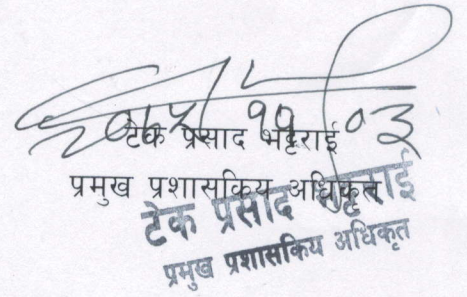 टेक प्रसाद भट्टराई
प्रमुख प्रशासकिय अधिकृत
टेक प्रसाद भट्टराई
प्रमुख प्रशासकिय अधिकृत